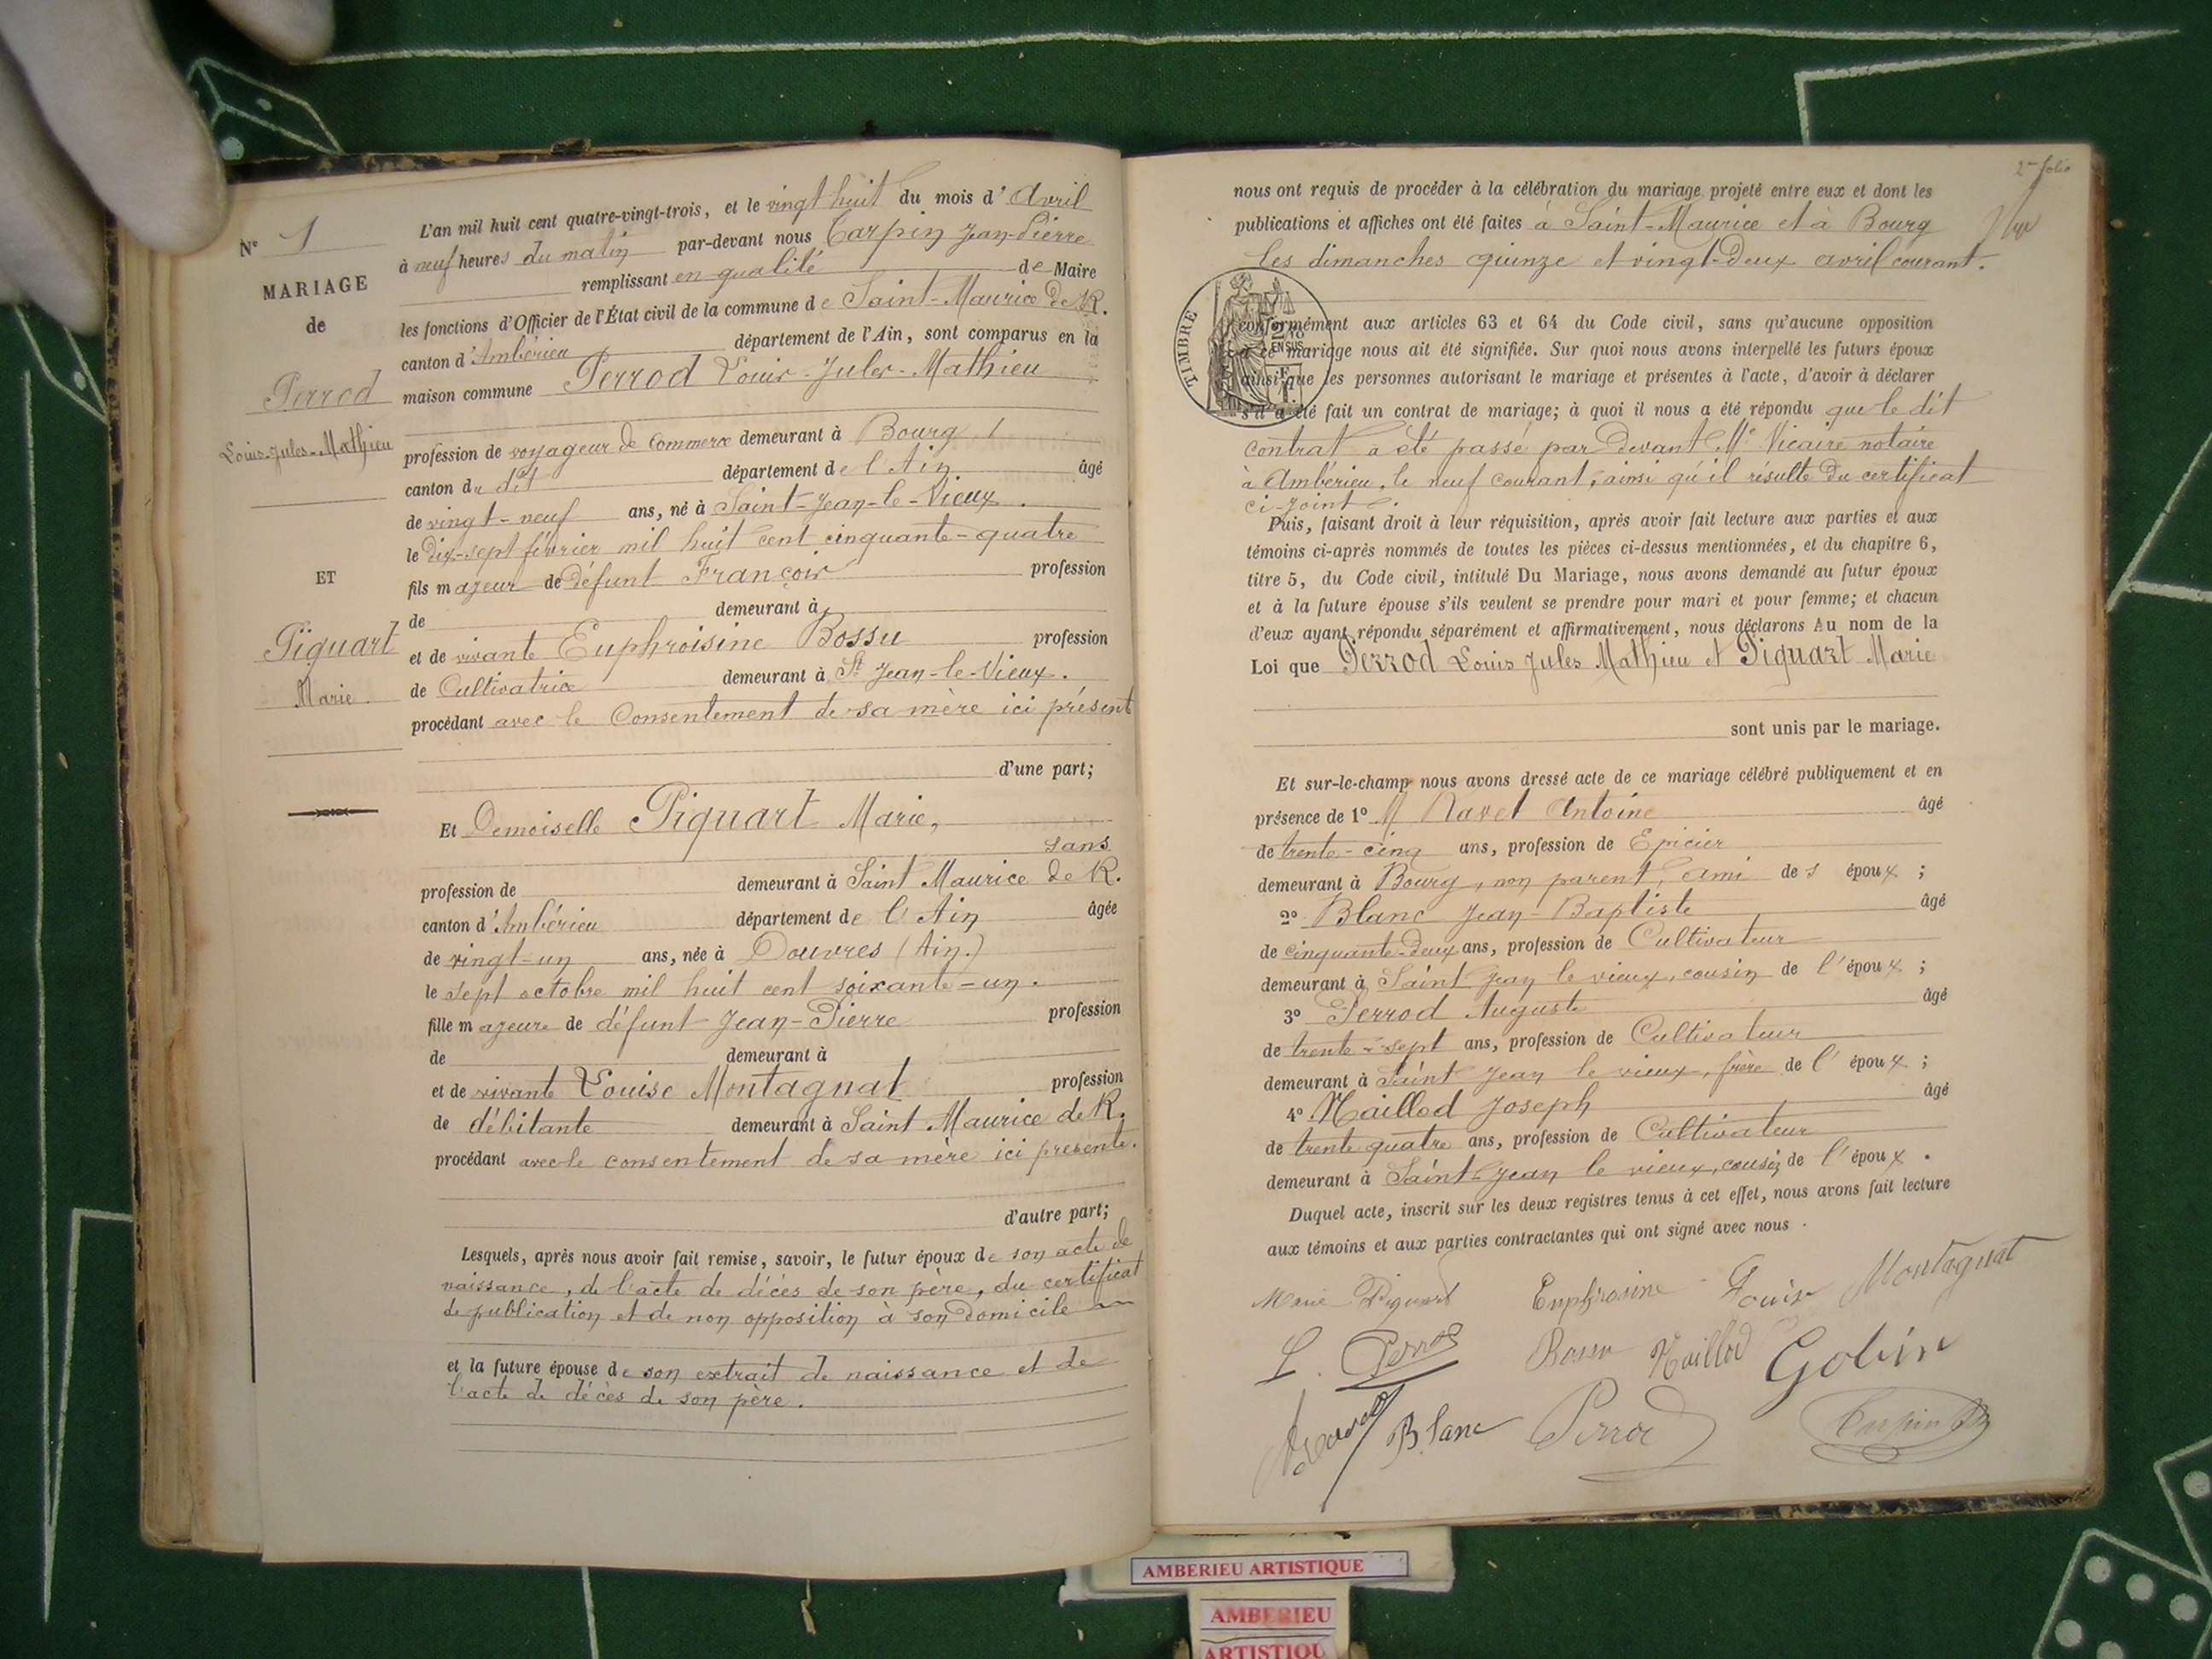 Nº 1
MARIAGE
de
Perrod
Louis-Jules-Mathieu
ET
Piquart
Marie
L'an mil huit cent quatre-vingt-trois, et le vingt huit du mois d'Avril
à neuf heures du matin par-devant nous Carpin Jean-Pierre
remplissant en qualité de Maire
les fonctions d'Officier de l'État civil de la commune de Saint-Maurice de R.
canton d'Ambérieu département de l'Ain, sont comparus en la
maison commune Perrod Louis-Jules-Mathieu
profession de voyageur de Commerce demeurant à Bourg
canton du dit département de l'Ain âgé
de vingt-neuf ans, né à Saint-Jean-le-Vieux.
le dix-sept février mil huit cent cinquante-quatre
fils majeur de défunt François profession
de demeurant à
et de vivante Euphroisine Bossu profession
de Cultivatrice demeurant à St Jean-le-Vieux.
procédant avec le Consentement de sa mère ici présent
d'une part;
Et Demoiselle Piquart Marie,
sans
profession de demeurant à Saint Maurice de R.
canton d'Ambérieu département de l'Ain âgée
de vingt-un ans, née à Douvres (Ain.)
le sept octobre mil huit cent soixante-un.
fille majeure de défunt Jean-Pierre profession
de demeurant à
et de vivante Louise Montagnat profession
de débitante demeurant à Saint Maurice de R.
procédant avec le consentement de sa mère ici présente.
d'autre part;
Lesquels, après nous avoir fait remise, savoir, le futur époux de son acte de
naissance, de l'acte de décès de son père, du certificat
de publication et de non opposition à son domicile
et la future épouse de son extrait de naissance et de
l'acte de décès de son père.
2me folio
nous ont requis de procéder à la célébration du mariage projeté entre eux et dont les
publications et affiches ont été faites à Saint-Maurice et à Bourg
les dimanches quinze et vingt-deux avril courant.
TIMBRE
EN SUS
conformément aux articles 63 et 64 du Code civil, sans qu'aucune opposition
à ce mariage nous ait été signifiée. Sur quoi nous avons interpellé les futurs époux
ainsi que les personnes autorisant le mariage et présentes à l'acte, d'avoir à déclarer
s'il a été fait un contrat de mariage; à quoi il nous a été répondu que le dit
contrat a été passé par devant Me Vicaire notaire
à Ambérieu, le neuf courant, ainsi qu'il résulte du certificat
ci-joint.
Puis, faisant droit à leur réquisition, après avoir fait lecture aux parties et aux
témoins ci-après nommés de toutes les pièces ci-dessus mentionnées, et du chapitre 6,
titre 5, du Code civil, intitulé Du Mariage, nous avons demandé au futur époux
et à la future épouse s'ils veulent se prendre pour mari et pour femme; et chacun
d'eux ayant répondu séparément et affirmativement, nous déclarons Au nom de la
Loi que Perrod Louis Jules Mathieu et Piquart Marie
sont unis par le mariage.
Et sur-le-champ nous avons dressé acte de ce mariage célébré publiquement et en
présence de 1º M Navet Antoine âgé
de trente-cinq ans, profession de Epicier
demeurant à Bourg, non parent, ami des époux ;
2º Blanc Jean-Baptiste âgé
de cinquante-deux ans, profession de Cultivateur
demeurant à Saint Jean le vieux, cousin de l'époux ;
3º Perrod Auguste âgé
de trente-sept ans, profession de Cultivateur
demeurant à Saint Jean le vieux, frère de l'époux ;
4º Maillod Joseph âgé
de trente quatre ans, profession de Cultivateur
demeurant à Saint-Jean le vieux, cousin de l'époux.
Duquel acte, inscrit sur les deux registres tenus à cet effet, nous avons fait lecture
aux témoins et aux parties contractantes qui ont signé avec nous.
Marie Piquart Euphrosine Louise Montagnat
L. Perrod Bossu Maillod Gobin
Navet Blanc Perrod Carpin
AMBERIEU ARTISTIQUE
AMBERIEU
ARTISTIQU